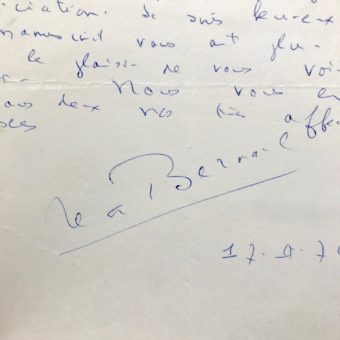 ciation. Je suis heureux
manuscrit vous ait plu.
le plaisir de vous voir
Nous vous en
ous deux nos très affec
Jean Bernard